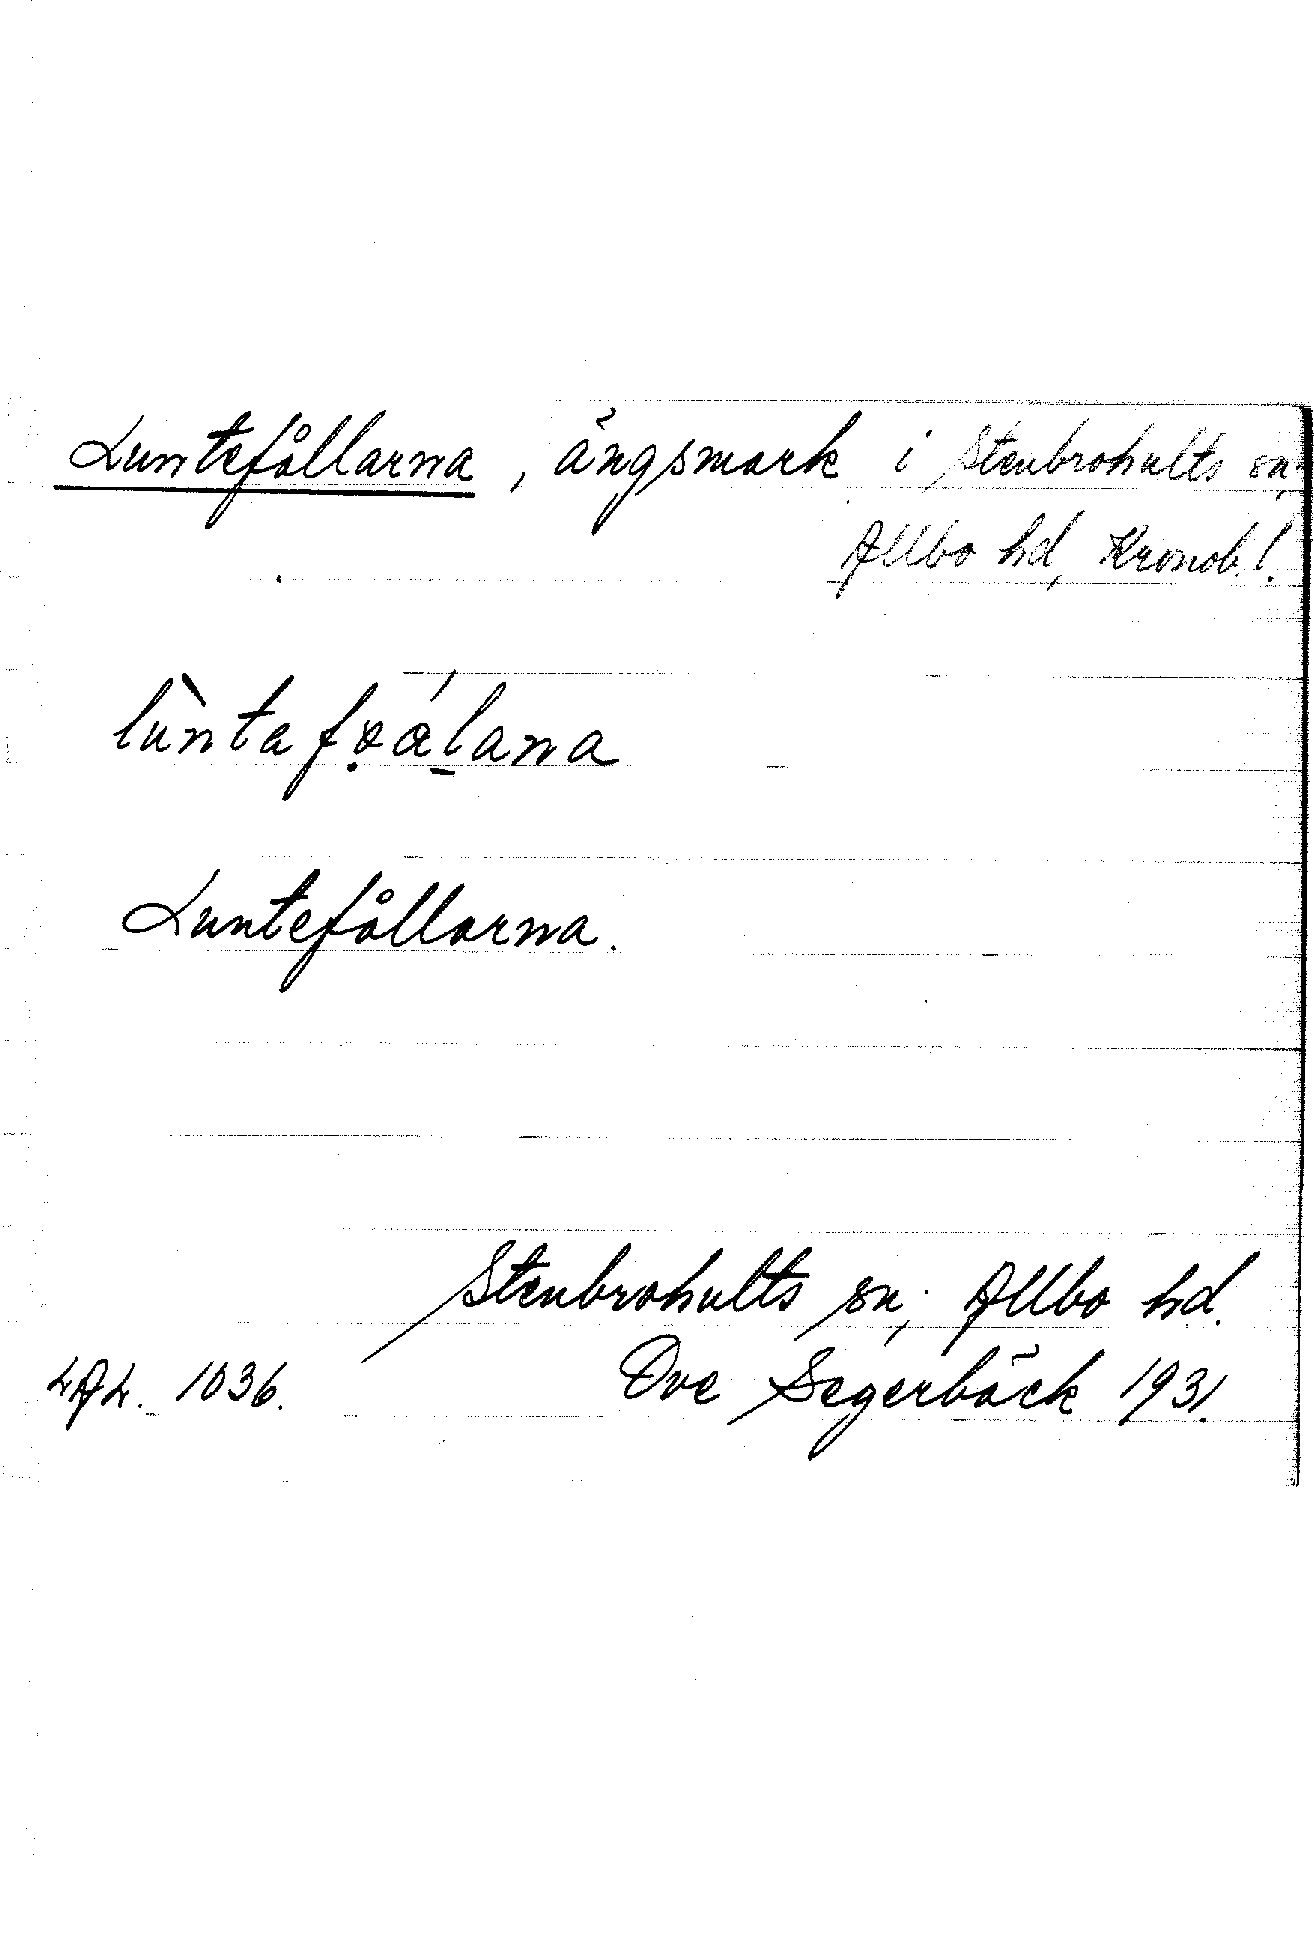 Luntefållarna, ängsmark i Stenbrohults sn,
Allbo hd, Kronob. l.
Luntefållarna.
Stenbrohults sn; Allbo hd.
LAL. 1036. Ove Segerbäck 1931.